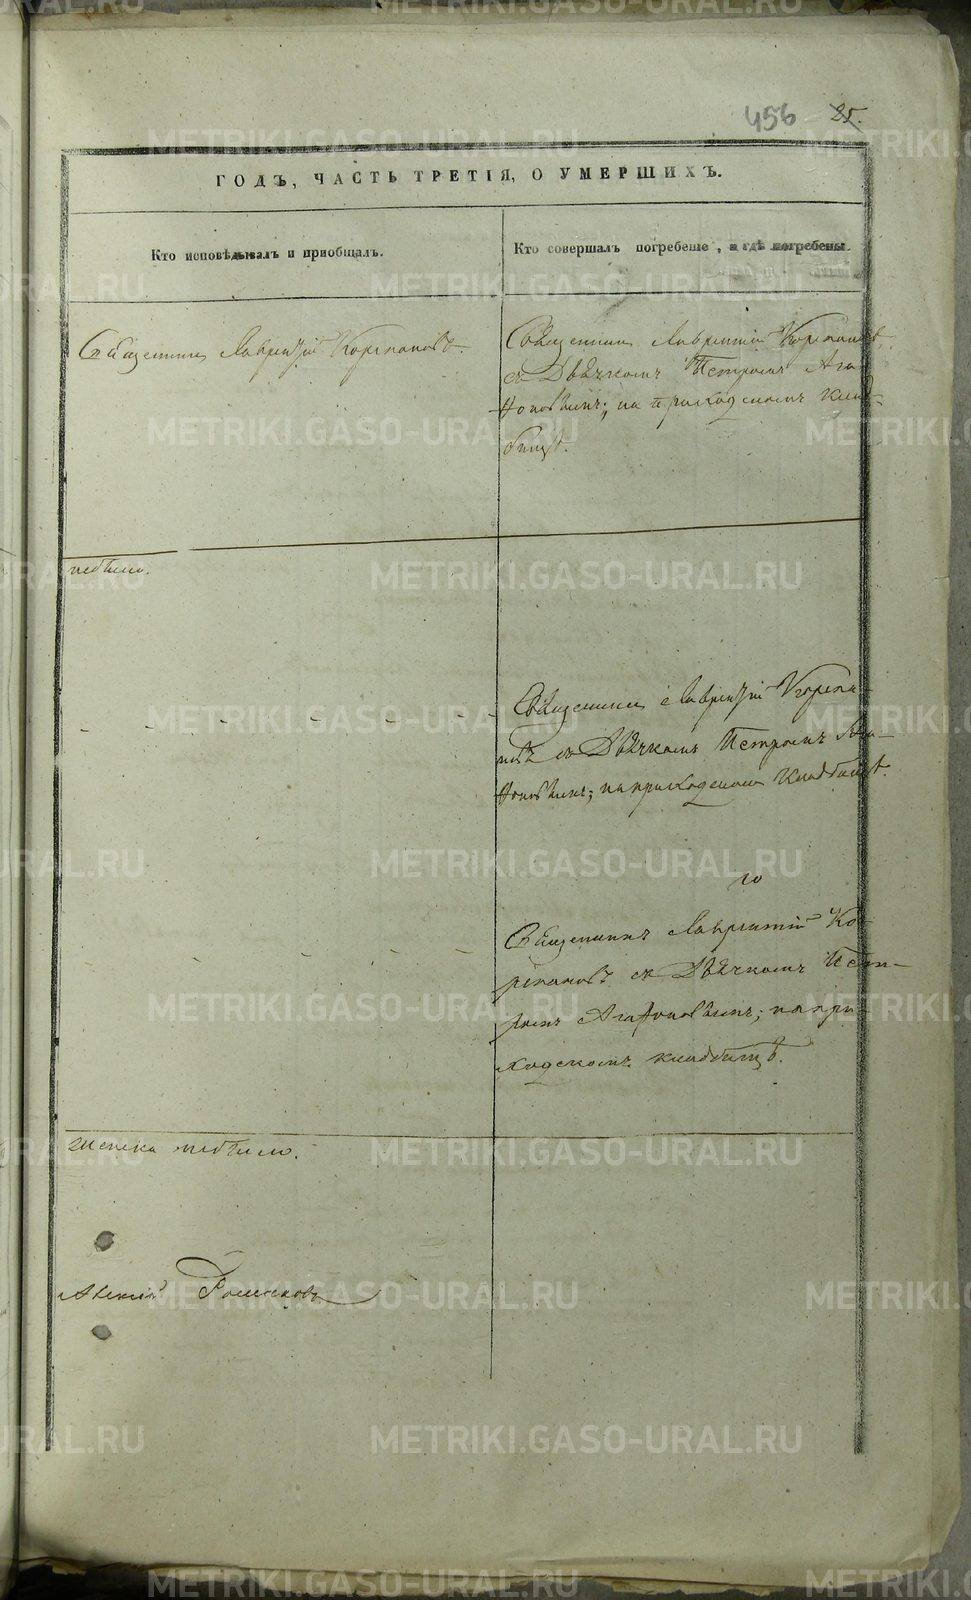 456 25.
ГОДЪ, ЧАСТЬ ТРЕТІЯ, О УМЕРШИХЪ.
Кто исповѣдывалъ и пріобщалъ.
Кто совершалъ погребеніе, и гдѣ погребены.
Священникъ Лаврентій Корепановъ.
Священникъ Лаврентій Корепановъ
съ Дьячкомъ Петромъ Ага-
фоновымъ; на приходскомъ клад-
бищѣ.
небыло.
Священникъ Лаврентій Корепа-
новъ съ Дьячкомъ Петромъ Ага-
фоновымъ; на приходскомъ кладбищѣ.
Священникъ Лаврентій Ко-
репановъ съ Дьячкомъ Пет-
ромъ Агафоновымъ; на при-
ходскомъ кладбищѣ.
небыло.
Алексій
METRIKI.GASO-URAL.RU